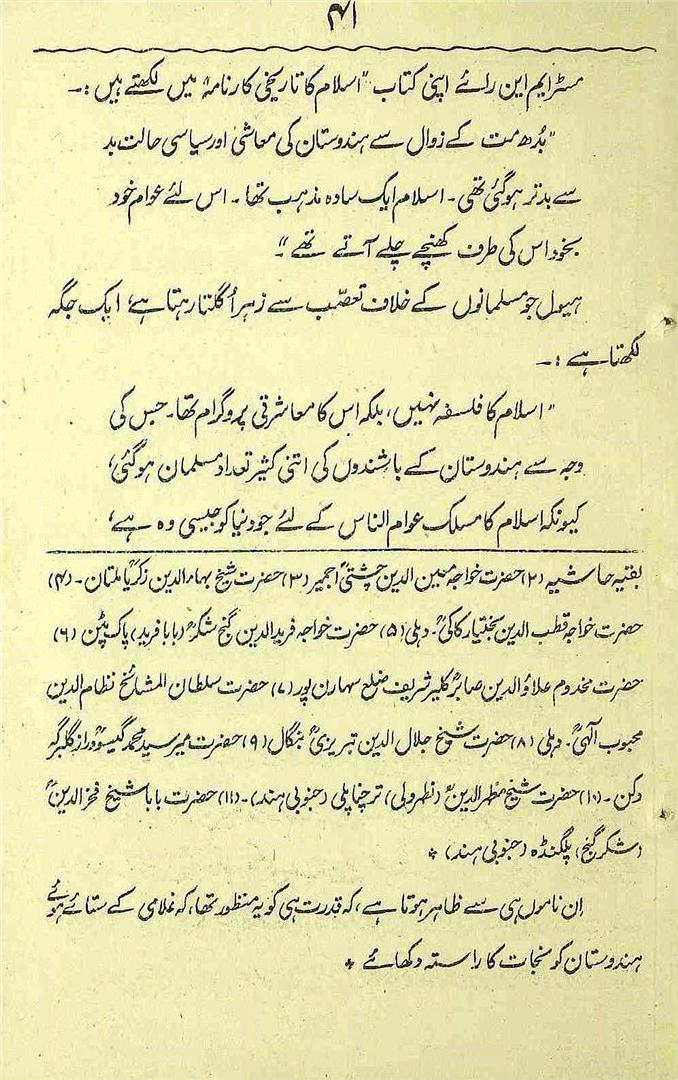 ۴۱
مسٹر ایم این رائے اپنی کتاب "اسلام کا تاریخی کارنامہ" میں لکھتے ہیں :۔
"بُدھ مت کے زوال سے ہندوستان کی معاشی اور سیاسی حالت بد
سے بدتر ہو گئی تھی۔ اسلام ایک سادہ مذہب تھا۔ اس لئے عوام خود
بخود اس کی طرف کھنچے چلے آتے تھے"۔
ہیول جو مسلمانوں کے خلاف تعصّب سے زہر اُگلتا رہتا ہے، ایک جگہ
لکھتا ہے :۔
"اسلام کا فلسفہ نہیں، بلکہ اس کا معاشرتی پروگرام تھا۔ جس کی
وجہ سے ہندوستان کے باشندوں کی اتنی کثیر تعداد مسلمان ہو گئی،
کیونکہ اسلام کا مسلک عوام الناس کے لئے جو دنیا کو جیسی وہ ہے،
بقیہ حاشیہ (۲) حضرت خواجہ معین الدین چشتیؒ اجمیر (۳) حضرت شیخ بہاء الدین زکریاؒ ملتان۔ (۴)
حضرت خواجہ قطب الدین بختیار کاکیؒ۔ دہلی (۵) حضرت خواجہ فرید الدین گنج شکرؒ (بابا فرید) پاک پٹن (۶)
حضرت مخدوم علاؤ الدین صابرؒ کلیر شریف ضلع سہارن پور (۷) حضرت سلطان المشائخ نظام الدین
محبوب الٰہیؒ۔ دہلی (۸) حضرت شیخ جلال الدین تبریزیؒ بنگال (۹) حضرت میر سید محمد گیسو درازؒ گلبرگہ
دکن۔ (۱۰) حضرت شیخ مظہر الدینؒ (نطہر ولی) ترچناپلی (جنوبی ہند)۔ (۱۱) حضرت بابا شیخ فخر الدینؒ
(شکر گنج) پلگنڈہ (جنوبی ہند) *
اِن ناموں ہی سے ظاہر ہوتا ہے، کہ قدرت ہی کو یہ منظور تھا، کہ غلامی کے ستائے ہوئے
ہندوستان کو نجات کا راستہ دکھائے *